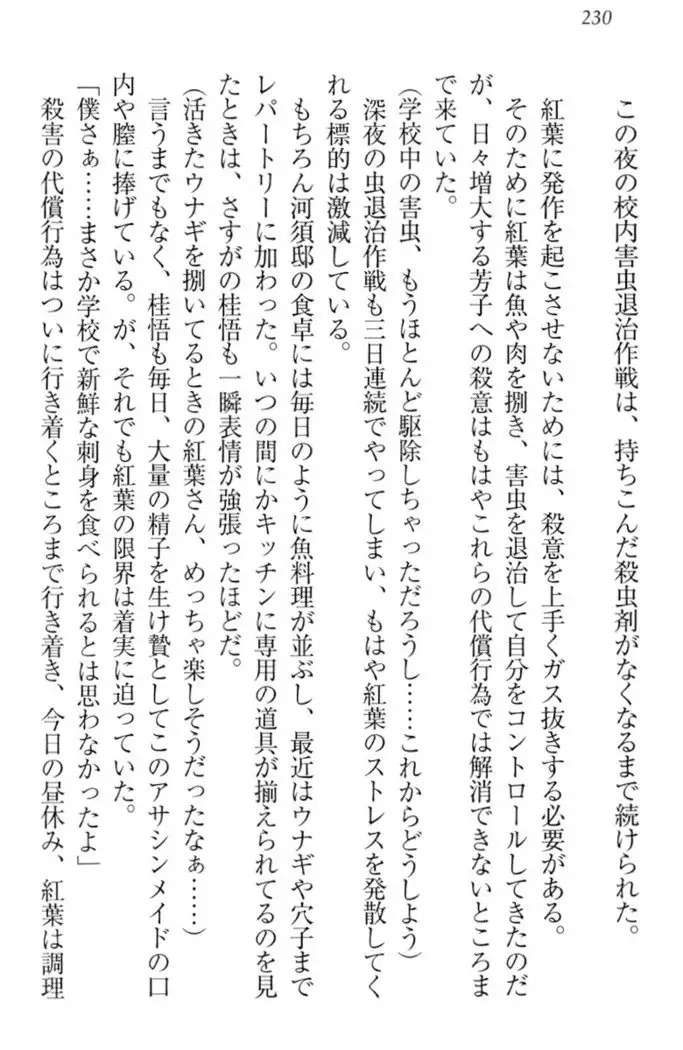 230
この夜の校内害虫退治作戦は、持ちこんだ殺虫剤がなくなるまで続けられた。
紅葉に発作を起こさせないためには、殺意を上手くガス抜きする必要がある。
そのために紅葉は魚や肉を捌き、害虫を退治して自分をコントロールしてきたのだ
が、日々増大する芳子への殺意はもはやこれらの代償行為では解消できないところま
で来ていた。
(学校中の害虫、もうほとんど駆除しちゃっただろうし……これからどうしよう)
深夜の虫退治作戦も三日連続でやってしまい、もはや紅葉のストレスを発散してく
れる標的は激減している。
もちろん河須邸の食卓には毎日のように魚料理が並ぶし、最近はウナギや穴子まで
レパートリーに加わった。いつの間にかキッチンに専用の道具が揃えられてるのを見
たときは、さすがの桂悟も一瞬表情が強張ったほどだ。
(活きたウナギを捌いてるときの紅葉さん、めっちゃ楽しそうだったなぁ……)
言うまでもなく、桂悟も毎日、大量の精子を生け贄としてこのアサシンメイドの口
内や膣に捧げている。が、それでも紅葉の限界は着実に迫っていた。
「僕さぁ……まさか学校で新鮮な刺身を食べられるとは思わなかったよ」
殺害の代償行為はついに行き着くところまで行き着き、今日の昼休み、紅葉は調理